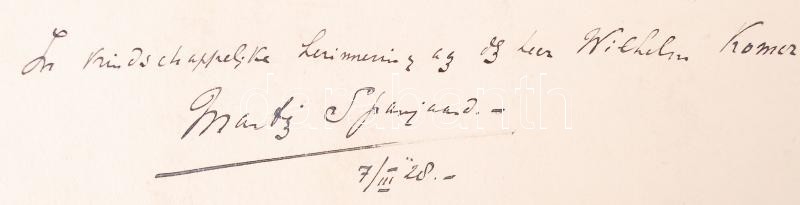 In vriendschappelijke herinnering aan den heer Wilhelm Komor
Martin Spanjaard.-
7/III '28.-
darabanth